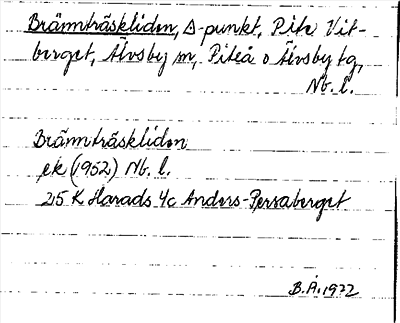 Brännträskliden, Δ-punkt, Pite Vit-
berget, Älvsby sn, Piteå o Älvsby tg,
Nb. l.
Brännträskliden
ek (1952) Nb. l.
25 K Harads 4c Anders-Persaberget
B.Å. 1972